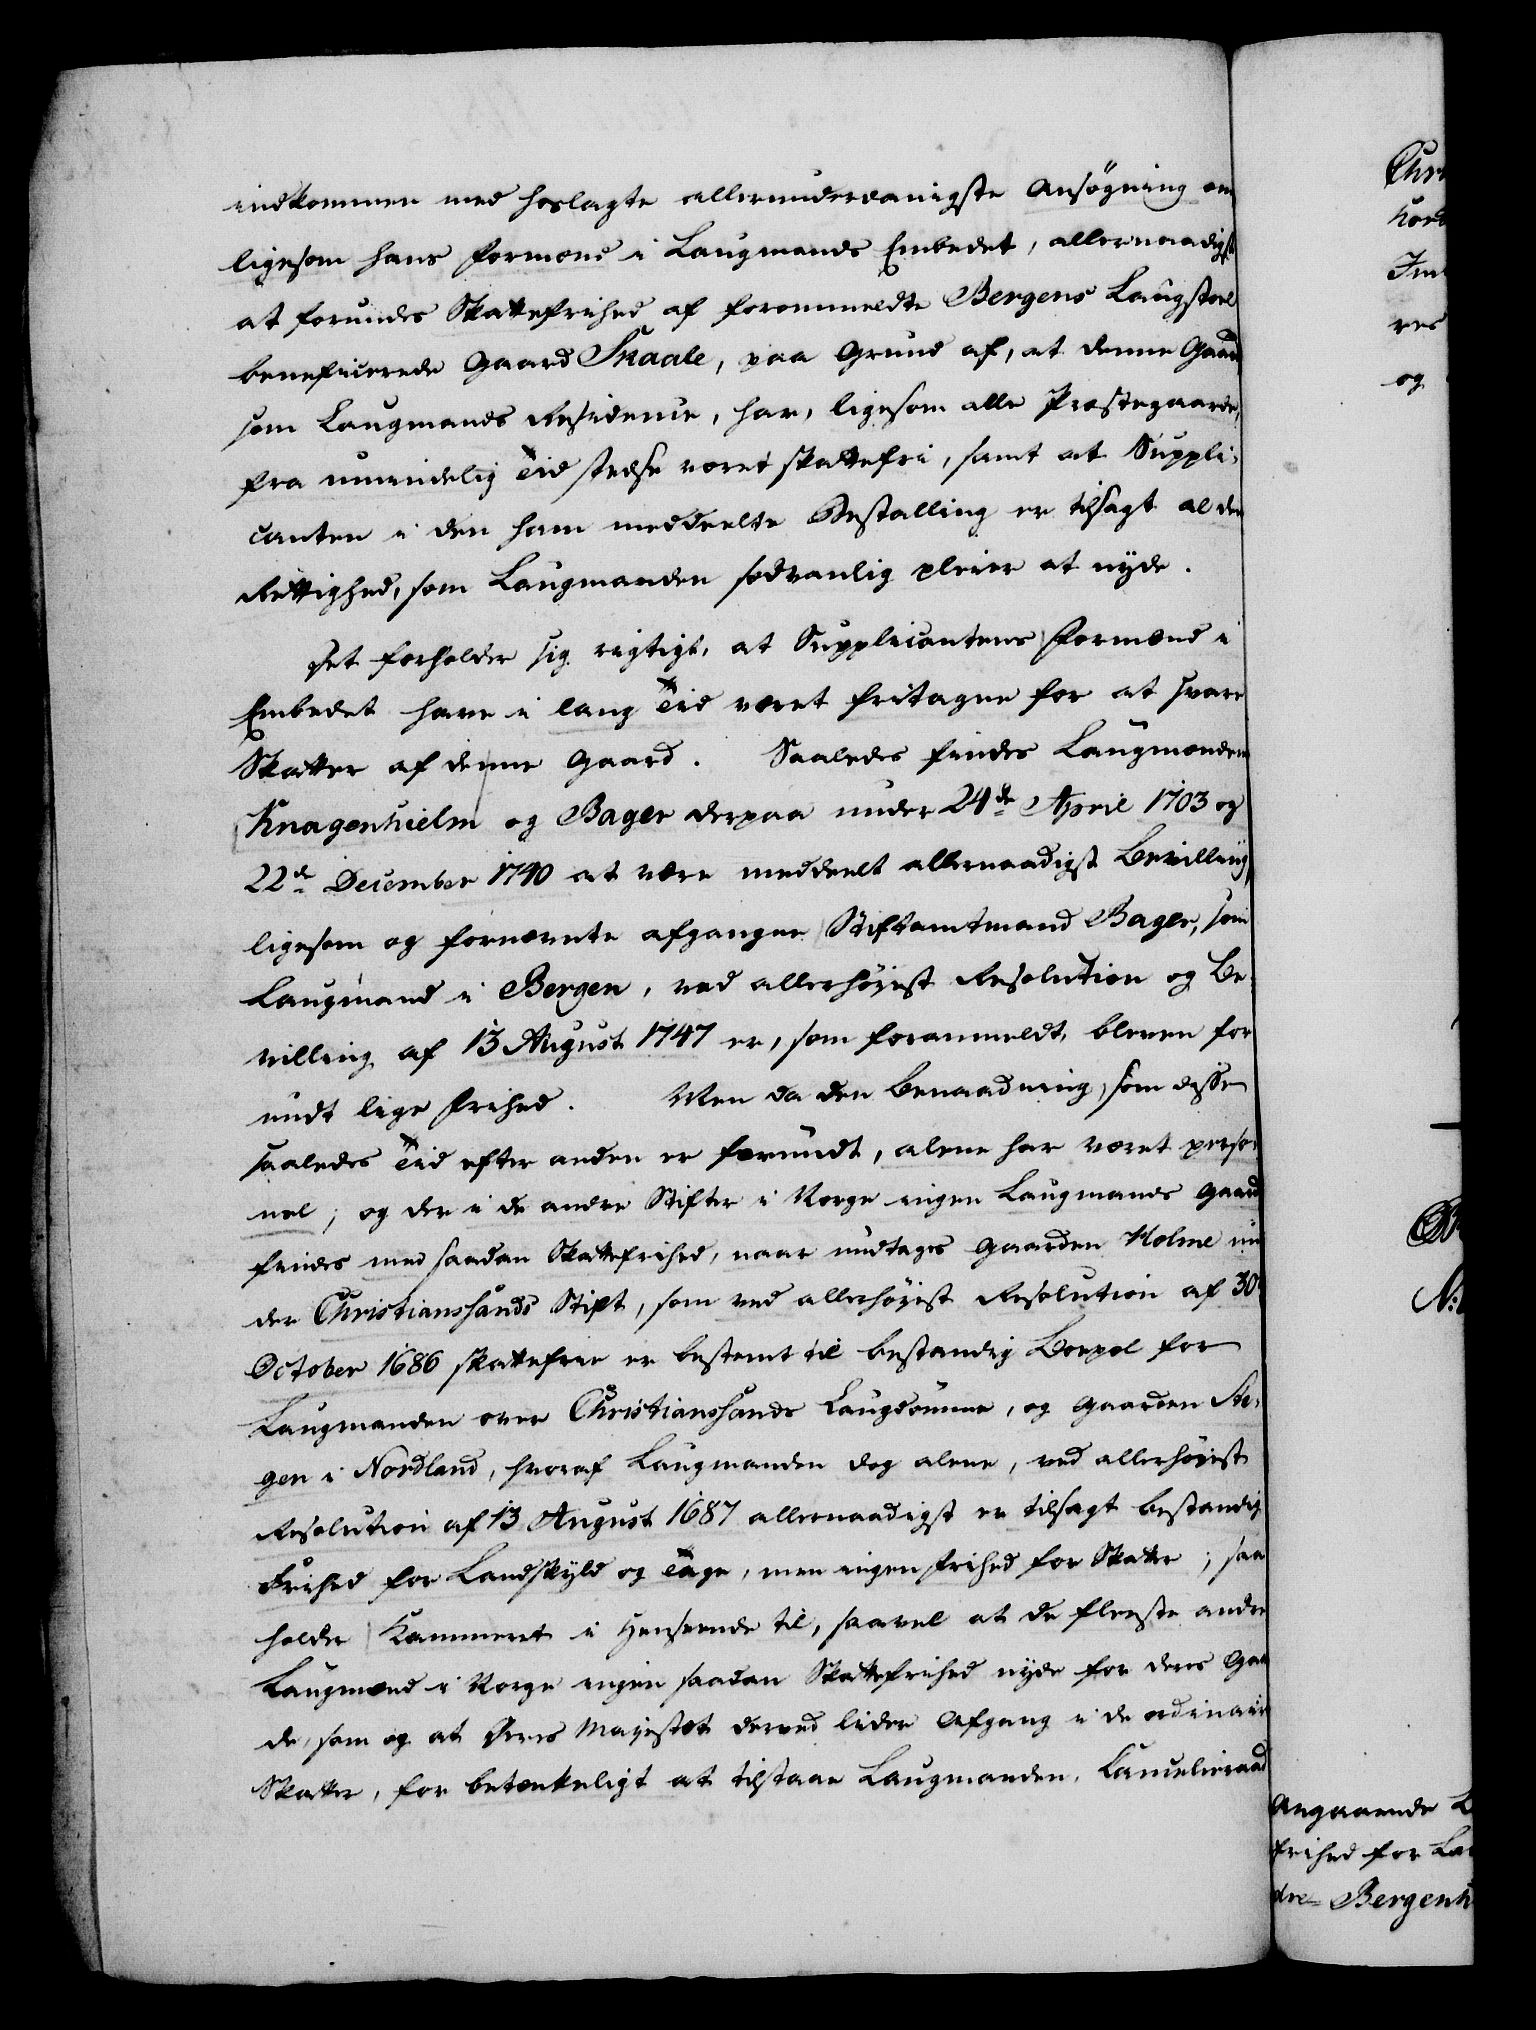 indkommen med hoslagte allerunderdanigste Ansøgning om
ligesom hans Formænd i Laugmands Embedet, allernaadigst
at forundes Skattefrihed af forommeldte Bergens Laugstoel
beneficerede Gaard Skaale, paa Grund af, at denne Gaard
som Laugmands Residence, har, ligesom alle Præstegaarde,
fra umindelig Tid stedse været skattefri, samt at Suppli-
canten i den ham meddeelte Bestalling er tilsagt al den
Rettighed, som Laugmanden sædvanlig pleier at nyde.
Det forholder sig rigtigt, at Supplicantens Formænd i
Embedet have i lang Tid været fritagne for at svare
Skatter af denne Gaard. Saaledes findes Laugmændene
Knagenhielm og Bager derpaa under 24de April 1703 og
22de December 1740 at være meddeelt allernaadigst Bevilling,
ligesom og fornævnte afgangne Stiftamtmand Bager, som
Laugmand i Bergen, ved allerhøjest Resolution og Be-
villing af 13 August 1747 er, som forommeldt, bleven for
undt lige Frihed. Men da den Benaadning, som disse
saaledes Tid efter anden er forundt, alene har været perso-
nel; og der i de andre Stifter i Norge ingen Laugmands Gaard
findes med saadan Skattefrihed, naar undtages Gaarden Holme un
der Christianssands Stift, som ved allerhøjest Resolution af 30
October 1686 skattefrie er bestemt til bestandig Boepæl for
Laugmanden over Christianssands Laugdømme, og Gaarden Ste-
gen i Nordland, hvoraf Laugmanden dog alene, ved allerhøjest
Resolution af 13 August 1687 allernaadigst er tilsagt bestandig
Frihed for Landskyld og Tage, men ingen Frihed for Skatter; saa
holder Kammeret i Henseende til, saavel at de fleeste andre
Laugmænd i Norge ingen saadan Skattefrihed nyde for deres Gaar
de, som og at Deres Majestæt derved lider Afgang i de ordinaire
Skatter, for betænkeligt at tilstaae Laugmanden, Cancelieraad
og
Angaaende
Frihed for
dre Bergenh